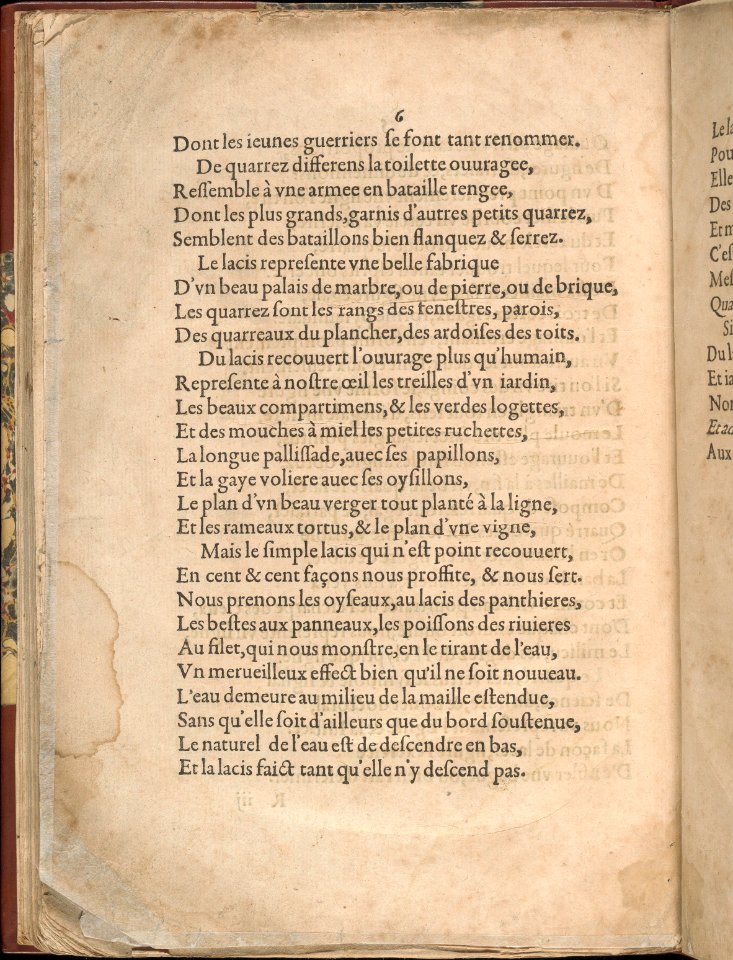 6
Dont les ieunes guerriers se font tant renommer.
De quarrez differens la toilette ouuragee,
Ressemble à vne armee en bataille rengee,
Dont les plus grands, garnis d'autres petits quarrez,
Semblent des bataillons bien flanquez & serrez.
Le lacis represente vne belle fabrique
D'vn beau palais de marbre, ou de pierre, ou de brique,
Les quarrez sont les rangs des fenestres, parois,
Des quarreaux du plancher, des ardoises des toits.
Du lacis recouuert l'ouurage plus qu'humain,
Represente à nostre œil les treilles d'vn iardin,
Les beaux compartimens, & les verdes logettes,
Et des mouches à miel les petites ruchettes,
La longue pallissade, auec ses papillons,
Et la gaye voliere auec ses oysillons,
Le plan d'vn beau verger tout planté à la ligne,
Et les rameaux tortus, & le plan d'vne vigne,
Mais le simple lacis qui n'est point recouuert,
En cent & cent façons nous proffite, & nous sert.
Nous prenons les oyseaux, au lacis des panthieres,
Les bestes aux panneaux, les poissons des riuieres
Au filet, qui nous monstre, en le tirant de l'eau,
Vn merueilleux effect bien qu'il ne soit nouueau.
L'eau demeure au milieu de la maille estendue,
Sans qu'elle soit d'ailleurs que du bord soustenue,
Le naturel de l'eau est de descendre en bas,
Et la lacis faict tant qu'elle n'y descend pas.
Le la
Pou
Elle
Des
Et m
C'es
Mes
Qua
Si
Du l
Et ia
Nor
Et ac
Aux